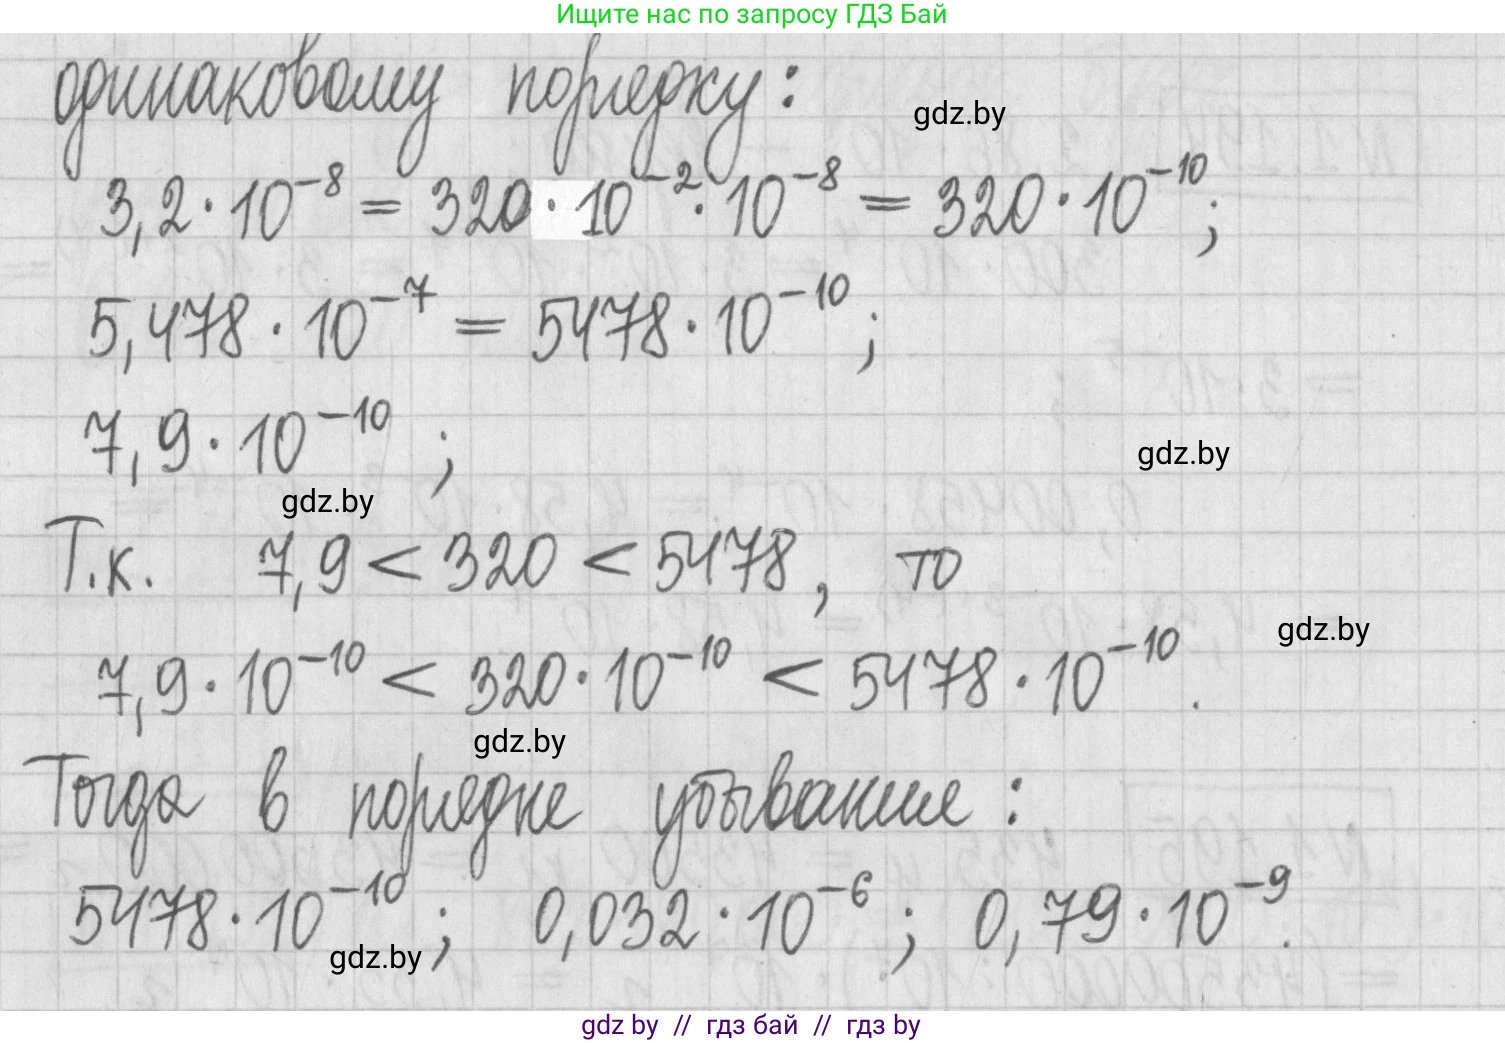 Ищите нас по запросу ГДЗ Бай
одинаковому порядку:
gdz.by
3,2·10⁻⁸ = 320·10⁻²·10⁻⁸ = 320·10⁻¹⁰;
5,478·10⁻⁷ = 5478·10⁻¹⁰;
7,9·10⁻¹⁰;
gdz.by
gdz.by
Т.к. 7,9 < 320 < 5478, то
gdz.by
7,9·10⁻¹⁰ < 320·10⁻¹⁰ < 5478·10⁻¹⁰.
gdz.by
Тогда в порядке убывания:
5478·10⁻¹⁰; 0,032·10⁻⁶; 0,79·10⁻⁹.
gdz.by
gdz by // гдз бай // гдз by